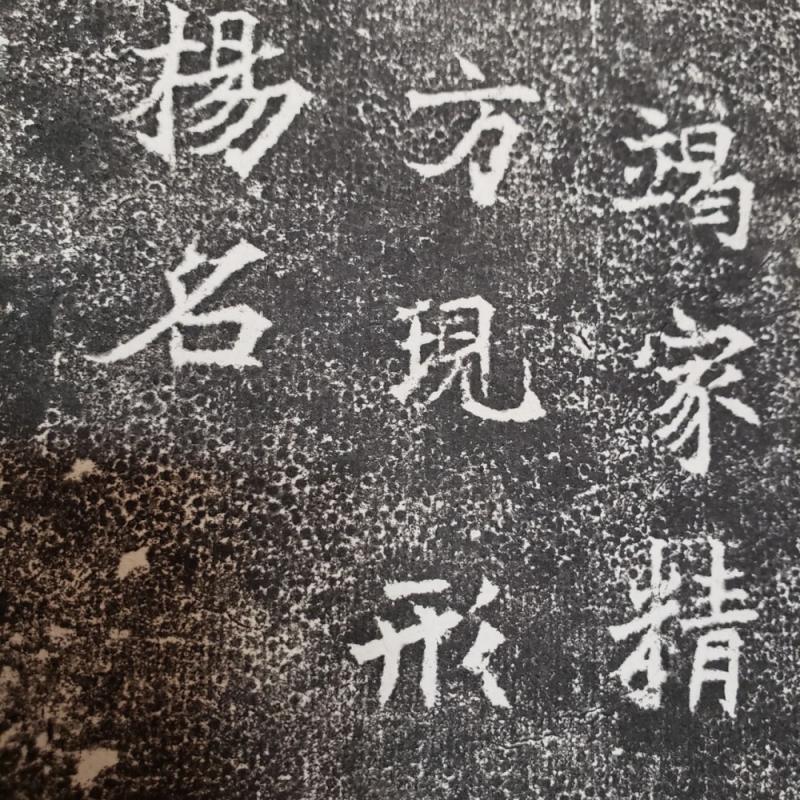 竭家精
方現形
楊名